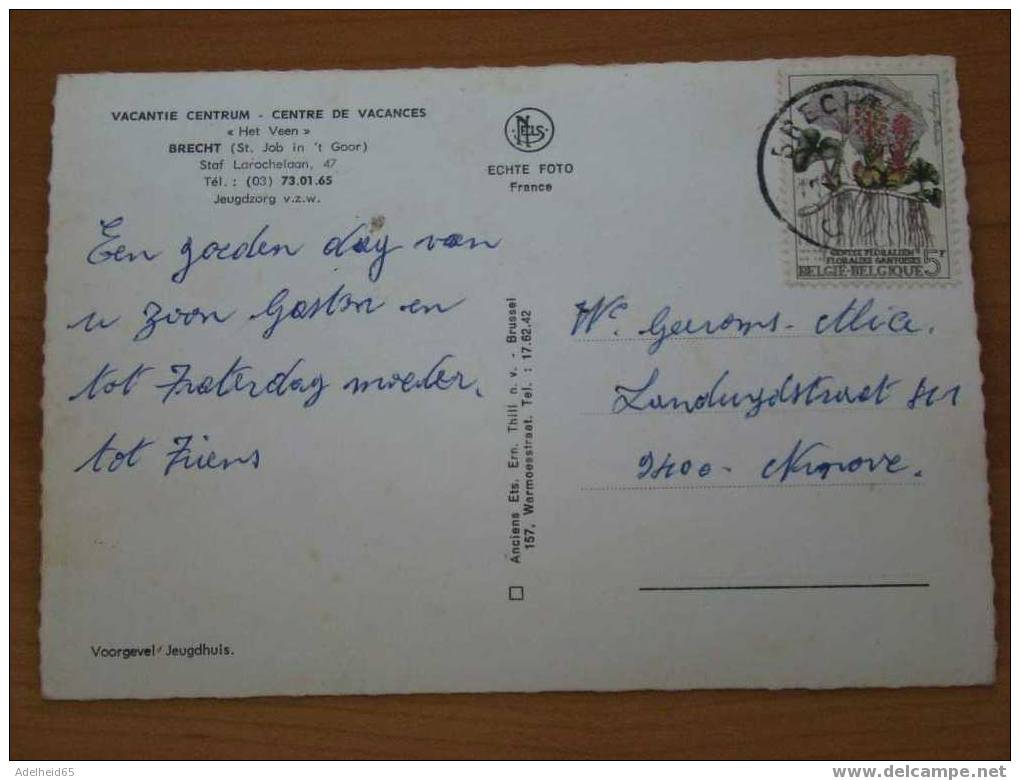 VACANTIE CENTRUM - CENTRE DE VACANCES
« Het Veen »
BRECHT (St. Job in 't Goor)
Staf Larochelaan, 47
Tél. : (03) 73.01.65
Jeugdzorg v.z.w.
NELS
ECHTE FOTO
France
BRECHT
GENTSE FLORALIËN
FLORALIES GANTOISES
BELGIË-BELGIQUE 5F
Een goeden dag van
u zoon Gaston en
tot Zaterdag moeder.
tot Ziens
Anciens Ets. Ern. Thill n. v. - Brussel
157, Warmoesstraat. Tel. : 17.62.42
We. Geeroms - Alice.
Landuydstraat 811
9400 - Ninove.
Voorgevel Jeugdhuis.
Adelheid65
www.delcampe.net